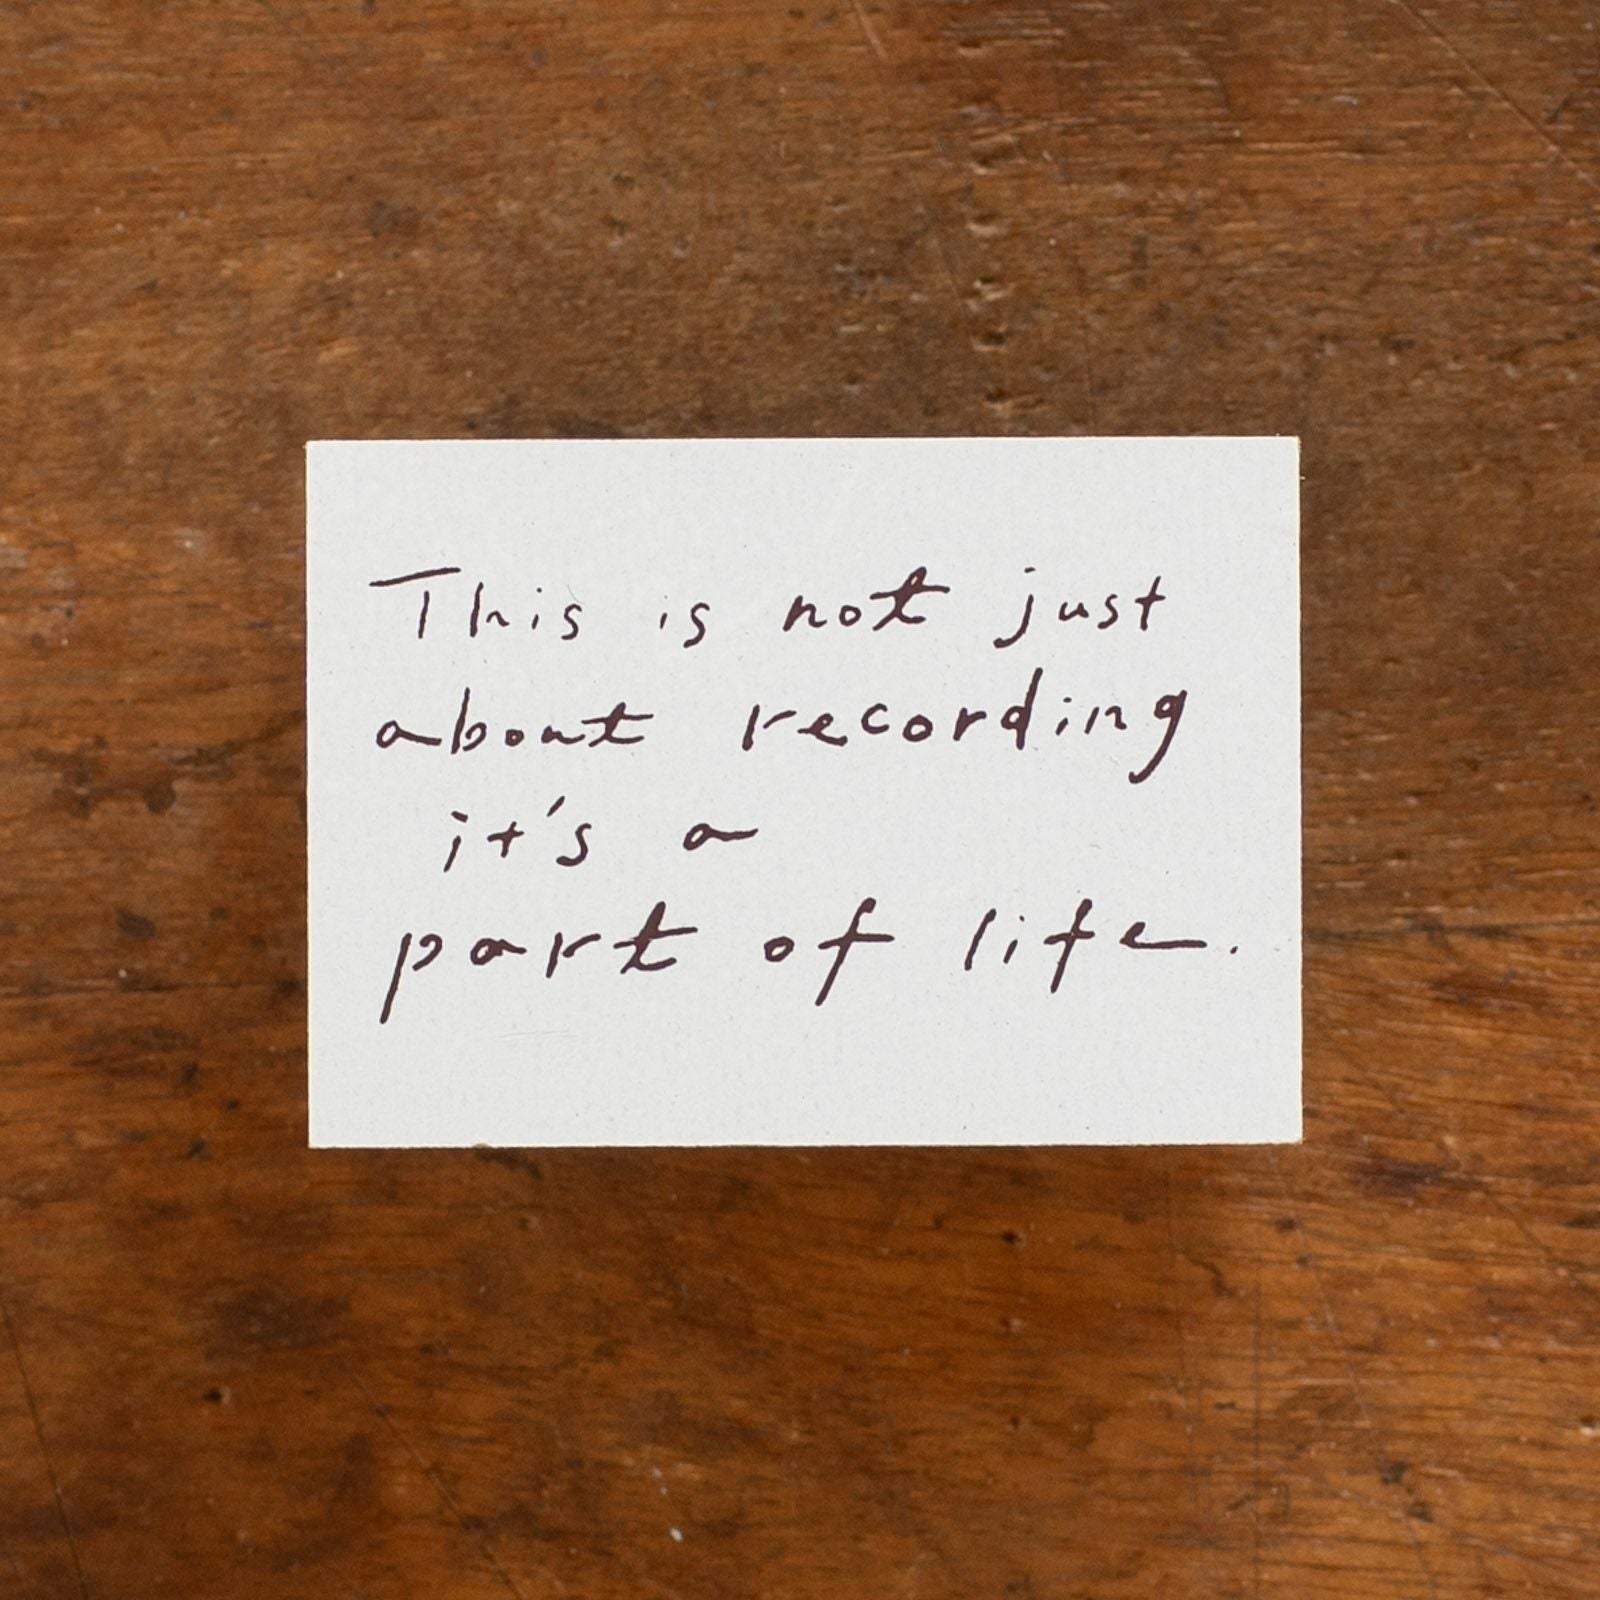 This is not just
about recording
it's a
part of life.